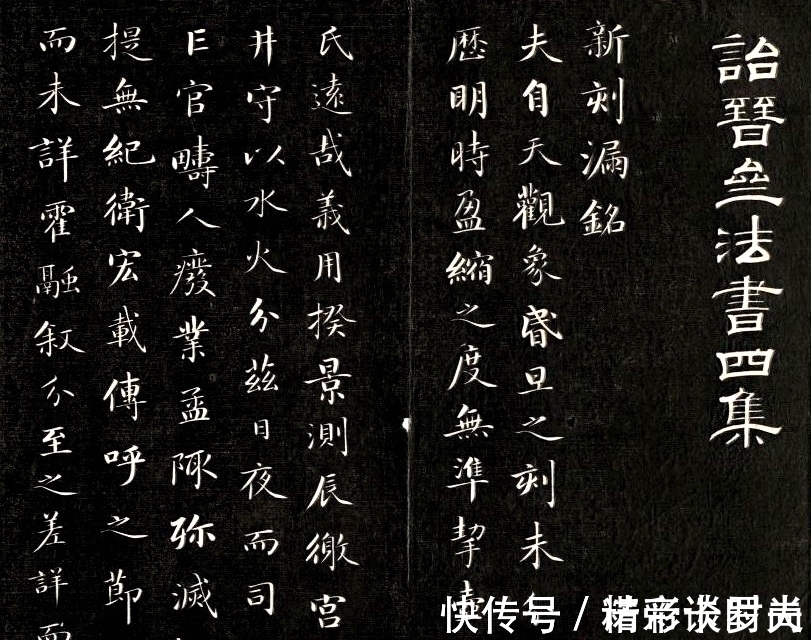 詒晉亝法書四集
新刻漏銘
夫自天觀象昬旦之刻未
歷明時盈縮之度無準挈壺
氏遠哉義用揆景測辰徼宮
井守以水火分茲日夜而司
亡官疇人廢業孟陬殄滅
提無紀衛宏載傳呼之節
而未詳霍融叙分至之差詳而
快传号 /